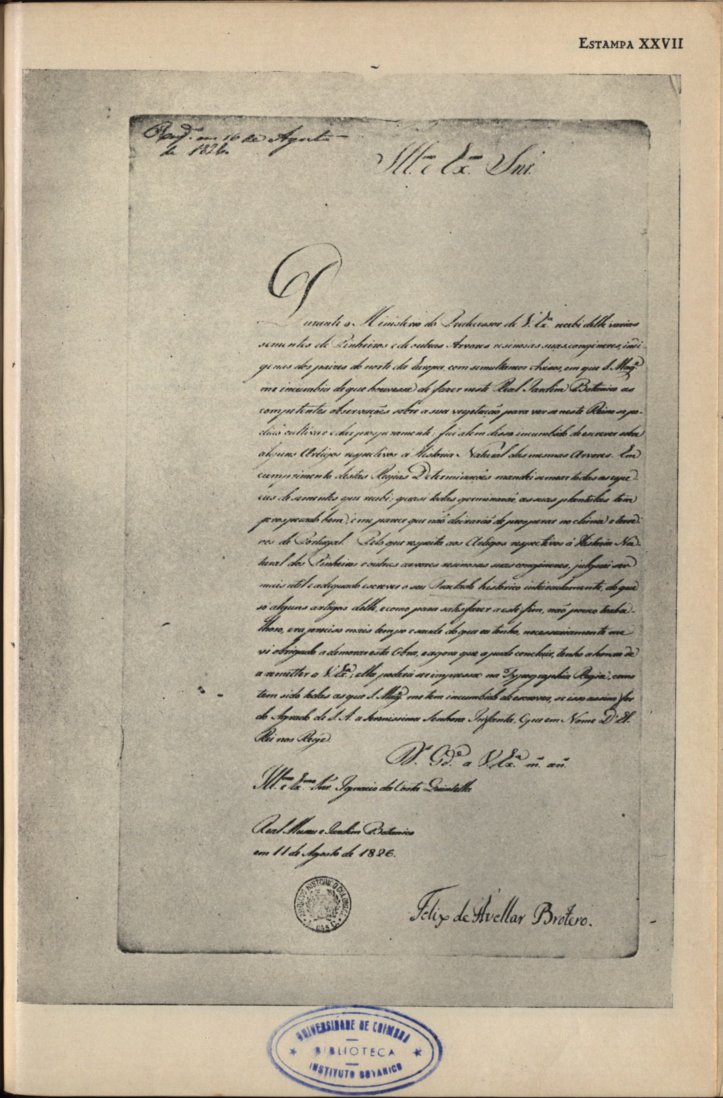 ESTAMPA XXVII
em 16 de Agosto
de 1826
Ill.mo e Ex.mo Snr.
Durante o Ministerio do Predecessor de V. Ex.a recebi delle varias
sementes de Pinheiros e de outras Arvores resinosas suas congeneres, indi-
genas dos paizes do norte da Europa, com simultaneos Avisos, em que S. Mag.e
me incumbia de que houvesse de fazer neste Real Jardim Botanico as
competentes observações sobre a sua vegetação para ver se neste Reino se po-
dião cultivar e dar prosperamente; fui alem disso incumbido de escrever sobre
alguns Artigos respectivos á Historia Natural das mesmas Arvores. Em
cumprimento destas Regias Determinações mandei semear todas as espe-
cies de sementes que recebi; quasi todas germinarão, as suas plantulas tem
prosperado bem, e me parece que não deixarão de prosperar no clima e terre-
nos de Portugal. Pelo que respeita aos Artigos respectivos á Historia Na-
tural dos Pinheiros e outras arvores resinosas suas congeneres, julguei ser
mais util e adequado escrever o seu Tractado historico inteiramente, do que
só alguns artigos delle, e como para satisfazer a este fim, não pouco traba-
lhoso, era preciso mais tempo e saude do que eu tenho, necessariamente me
vi obrigado a demorar esta Obra, e agora que a pude concluir, tenho a honra de
a remetter a V. Ex.a; ella poderá ser impressa na Typographia Regia, como
tem sido todas as que S. Mag.e me tem incumbido de escrever, se isso assim for
do Agrado de S. A. a Serenissima Senhora Infanta, que em Nome D'El
Rei nos Rege.
D.s G.de a V. Ex.a m. an.
Ill.mo e Ex.mo Snr. Ignacio da Costa Quintella
Real Museu e Jardim Botanico
em 11 de Agosto de 1826.
Felix de Avellar Brotero.
UNIVERSIDADE DE COIMBRA
BIBLIOTECA
INSTITUTO BOTANICO